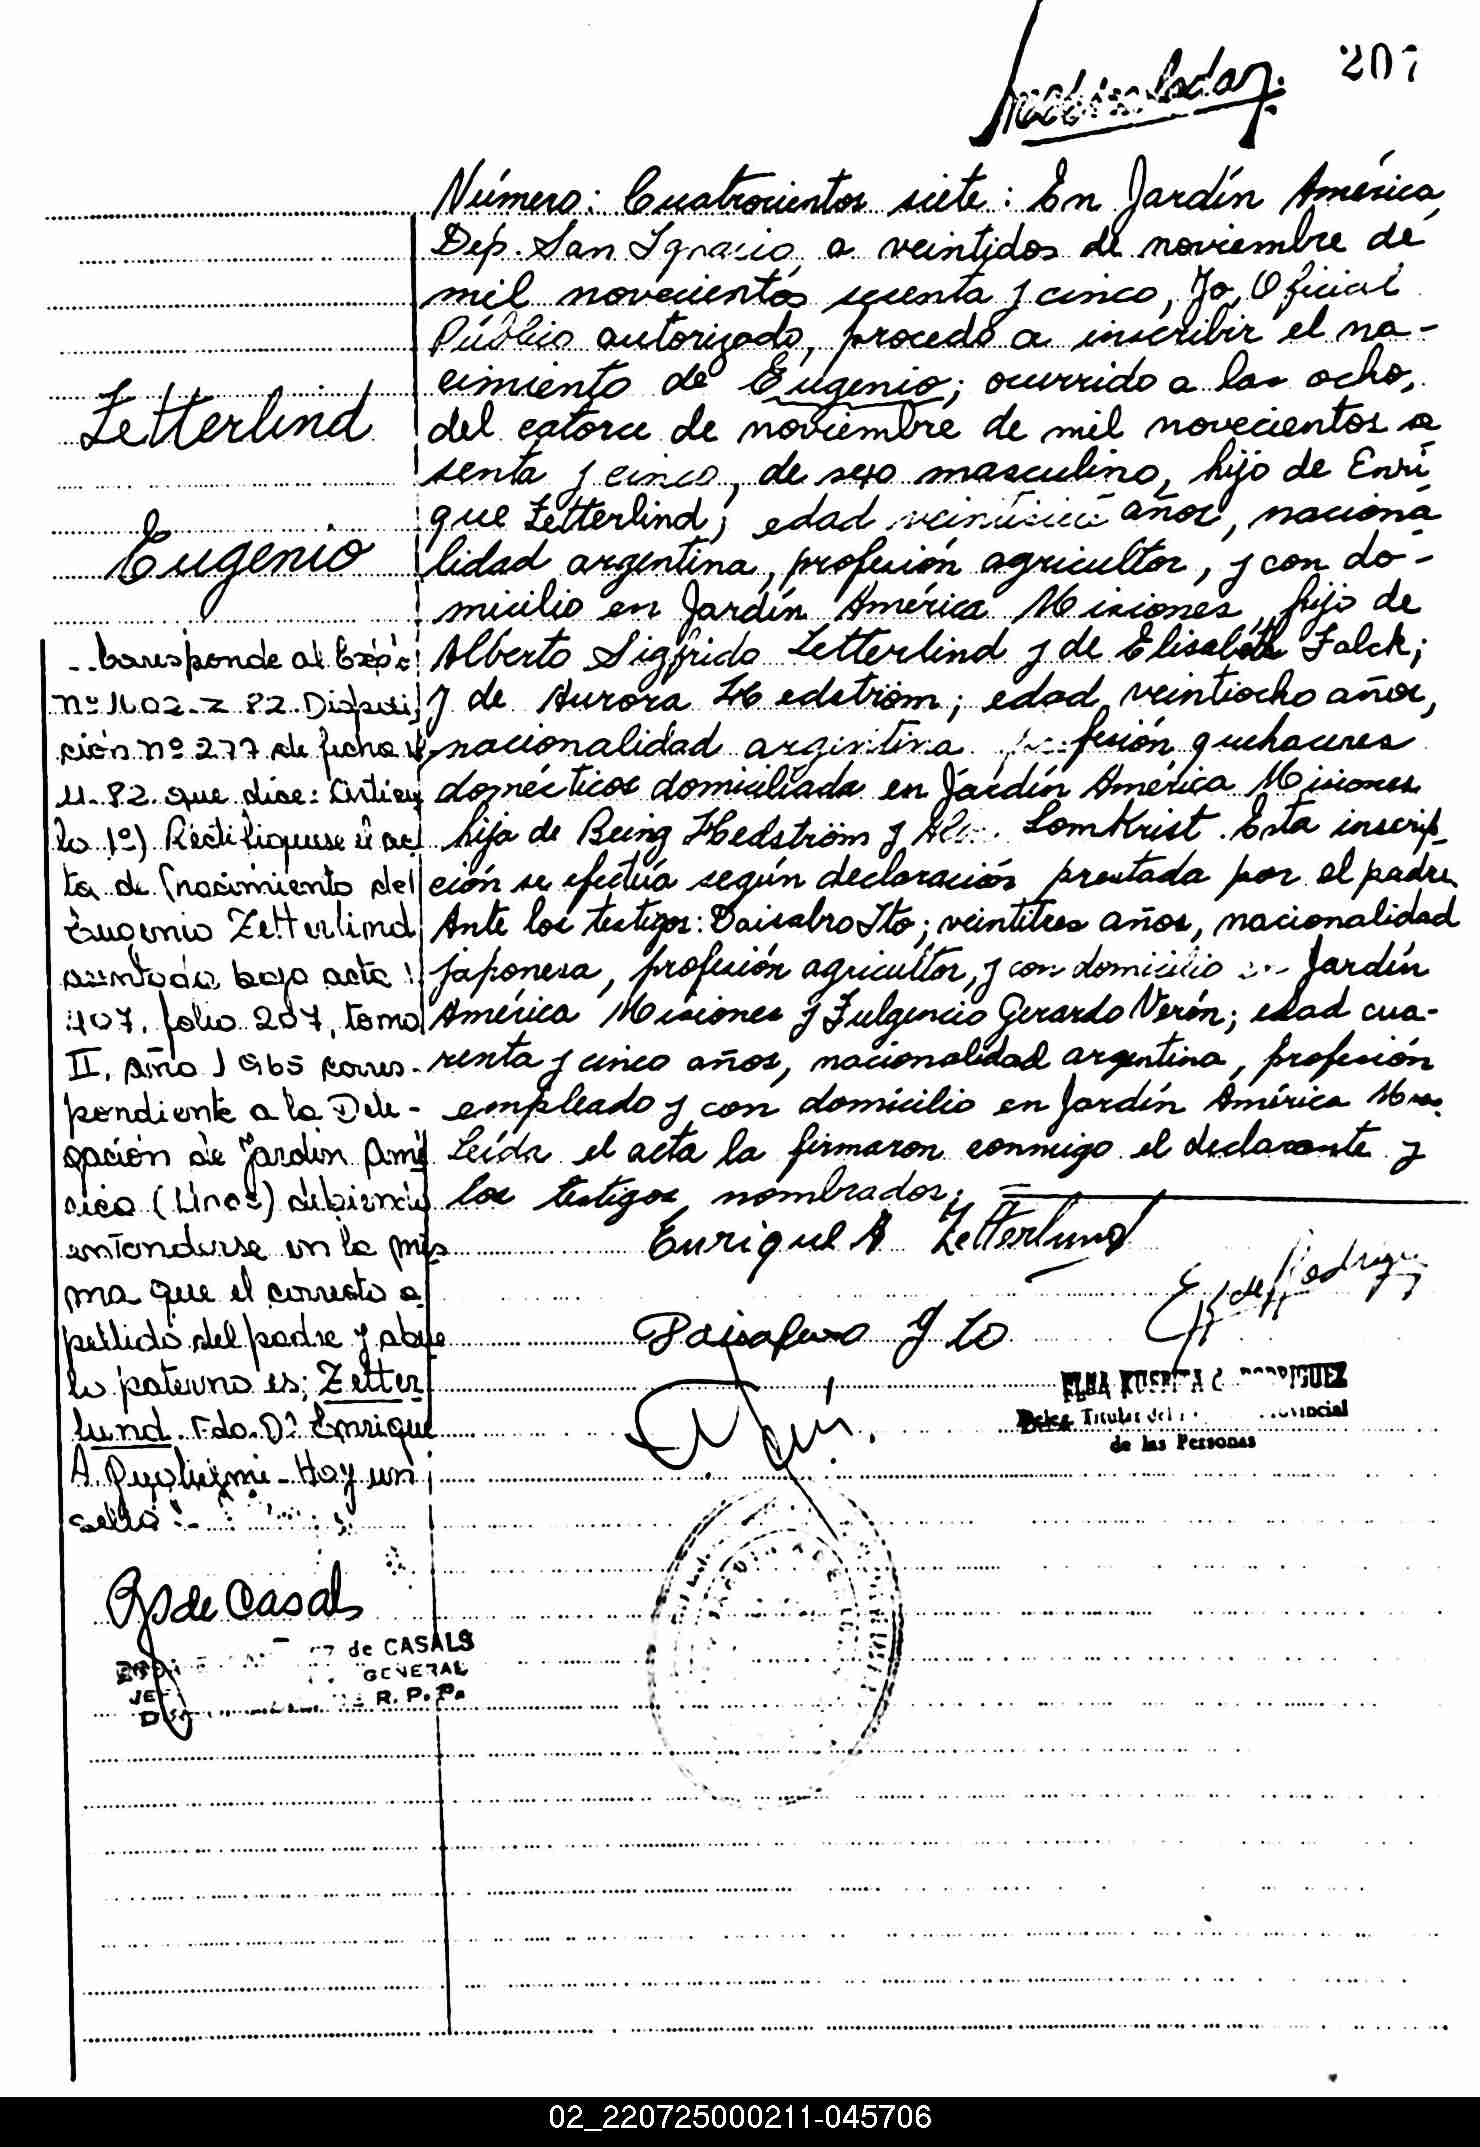 207
Número: Cuatrocientos siete: En Jardín América,
Dep. San Ignacio, a veintidos de noviembre de
mil novecientos sesenta y cinco, Yo, Oficial
Público autorizado, procedo a inscribir el na-
cimiento de Eugenio; ocurrido a las ocho,
del catorce de noviembre de mil novecientos se
senta y cinco, de sexo masculino, hijo de Enri
que Zetterlind; edad años, naciona
lidad argentina, profesión agricultor, y con do-
micilio en Jardín América Misiones, hijo de
Alberto Sigfrido Zetterlind y de Elisabeth Falck;
y de Aurora Hedström; edad veintiocho años,
nacionalidad argentina profesión quehaceres
domésticos domiciliada en Jardín América Misiones
hija de Being Hedström y Lomkrist. Esta inscrip-
ción se efectúa según declaración prestada por el padre
Ante los testigos: Daisabro Ito; veintitres años, nacionalidad
japonesa, profesión agricultor, y con domicilio en Jardín
América Misiones y Fulgencio Gerardo Verón; edad cua-
renta y cinco años, nacionalidad argentina, profesión
empleado y con domicilio en Jardín América Mnes.
Leída el acta la firmaron conmigo el declarante y
los testigos nombrados;
Enrique A Zetterlund
E R de Rodriguez
Daisaburo Ito
ELNA C. RODRIGUEZ
Deleg. Titular del Provincial
de las Personas
Zetterlind
Eugenio
Corresponde al Expte
Nº 1102-Z 82. Disposi
ción nº 277 de fecha
11-82 que dice: Artícu
lo 1º) Rectifíquese el ac
ta de nacimiento del
Eugenio Zetterlind
asentada bajo acta
407, folio 207, tomo
II, año 1965 corres-
pondiente a la Dele-
gación de Jardín Amé
rica (Mnes) debiendo
entenderse en la mis
ma que el correcto a
pellido del padre y abue
lo paterno es; Zetter
lund. Fdo. Dº Enrique
A. Guglielmi - Hay un
sello.-
de Casals
de CASALS
GENERAL
R. P. P.
02_220725000211-045706